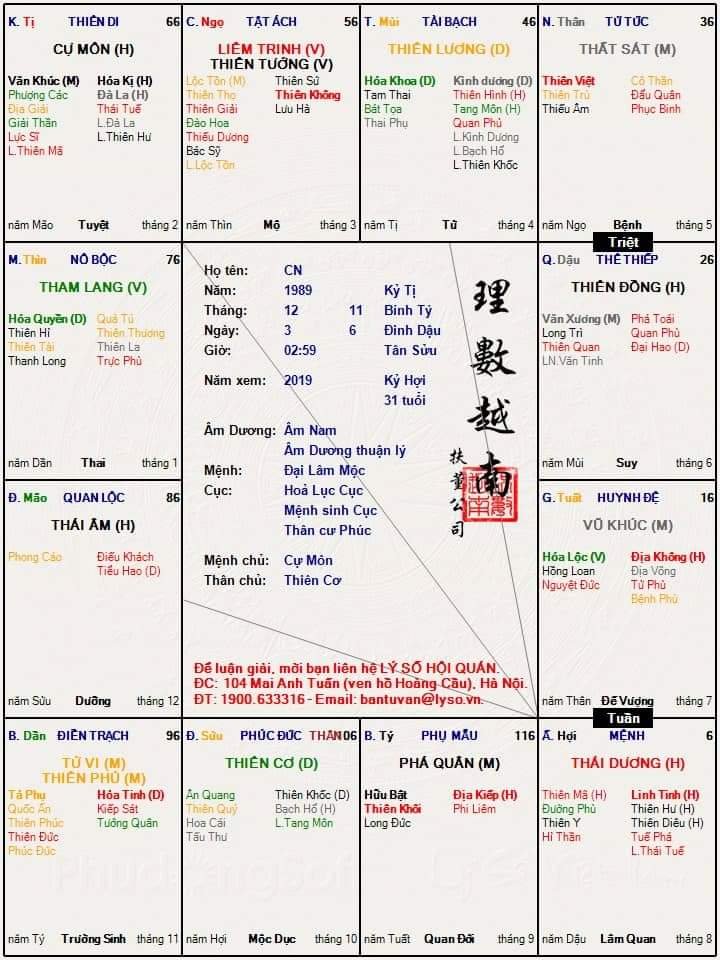 K. Tị THIÊN DI 66
CỰ MÔN (H)
Văn Khúc (M) Hóa Kị (H)
Phượng Các Đà La (H)
Địa Giải Thái Tuế
Giải Thần L.Đà La
Lực Sĩ L.Thiên Hư
L.Thiên Mã
năm Mão Tuyệt tháng 2
C. Ngọ TẬT ÁCH 56
LIÊM TRINH (V)
THIÊN TƯỚNG (V)
Lộc Tồn (M) Thiên Sứ
Thiên Thọ Thiên Không
Thiên Giải Lưu Hà
Đào Hoa
Thiếu Dương
Bác Sỹ
L.Lộc Tồn
năm Thìn Mộ tháng 3
T. Mùi TÀI BẠCH 46
THIÊN LƯƠNG (D)
Hóa Khoa (D) Kình dương (D)
Tam Thai Thiên Hình (H)
Bát Tọa Tang Môn (H)
Thai Phụ Quan Phủ
L.Kình Dương
L.Bạch Hổ
L.Thiên Khốc
năm Tị Tử tháng 4
N. Thân TỬ TỨC 36
THẤT SÁT (M)
Thiên Việt Cô Thần
Thiên Trù Đẩu Quân
Thiếu Âm Phục Binh
năm Ngọ Bệnh tháng 5
Triệt
M. Thìn NÔ BỘC 76
THAM LANG (V)
Hóa Quyền (D) Quả Tú
Thiên Hỉ Thiên Thương
Thiên Tài Thiên La
Thanh Long Trực Phù
năm Dần Thai tháng 1
Họ tên: CN
Năm: 1989 Kỷ Tị
Tháng: 12 11 Bính Tý
Ngày: 3 6 Đinh Dậu
Giờ: 02:59 Tân Sửu
Năm xem: 2019 Kỷ Hợi
31 tuổi
Âm Dương: Âm Nam
Âm Dương thuận lý
Mệnh: Đại Lâm Mộc
Cục: Hoả Lục Cục
Mệnh sinh Cục
Thân cư Phúc
Mệnh chủ: Cự Môn
Thân chủ: Thiên Cơ
理數越南
扶董公司
Để luận giải, mời bạn liên hệ LÝ SỐ HỘI QUÁN.
ĐC: 104 Mai Anh Tuấn (ven hồ Hoàng Cầu), Hà Nội.
ĐT: 1900.633316 - Email: bantuvan@lyso.vn.
Q. Dậu THÊ THIẾP 26
THIÊN ĐỒNG (H)
Văn Xương (M) Phá Toái
Long Trì Quan Phù
Thiên Quan Đại Hao (D)
LN.Văn Tinh
năm Mùi Suy tháng 6
Đ. Mão QUAN LỘC 86
THÁI ÂM (H)
Phong Cáo Điếu Khách
Tiểu Hao (D)
năm Sửu Dưỡng tháng 12
G. Tuất HUYNH ĐỆ 16
VŨ KHÚC (M)
Hóa Lộc (V) Địa Không (H)
Hồng Loan Địa Võng
Nguyệt Đức Tử Phù
Bệnh Phù
năm Thân Đế Vượng tháng 7
Tuần
B. Dần ĐIỀN TRẠCH 96
TỬ VI (M)
THIÊN PHỦ (M)
Tả Phụ Hỏa Tinh (D)
Quốc Ấn Kiếp Sát
Thiên Phúc Tướng Quân
Thiên Đức
Phúc Đức
năm Tý Trường Sinh tháng 11
Đ. Sửu PHÚC ĐỨC THÂN 106
THIÊN CƠ (D)
Ân Quang Thiên Khốc (D)
Thiên Quý Bạch Hổ (H)
Hoa Cái L.Tang Môn
Tấu Thư
năm Hợi Mộc Dục tháng 10
B. Tý PHỤ MẪU 116
PHÁ QUÂN (M)
Hữu Bật Địa Kiếp (H)
Thiên Khôi Phi Liêm
Long Đức
năm Tuất Quan Đới tháng 9
Ấ. Hợi MỆNH 6
THÁI DƯƠNG (H)
Thiên Mã (H) Linh Tinh (H)
Đường Phù Thiên Hư (H)
Thiên Y Thiên Diêu (H)
Hỉ Thần Tuế Phá
L.Thái Tuế
năm Dậu Lâm Quan tháng 8